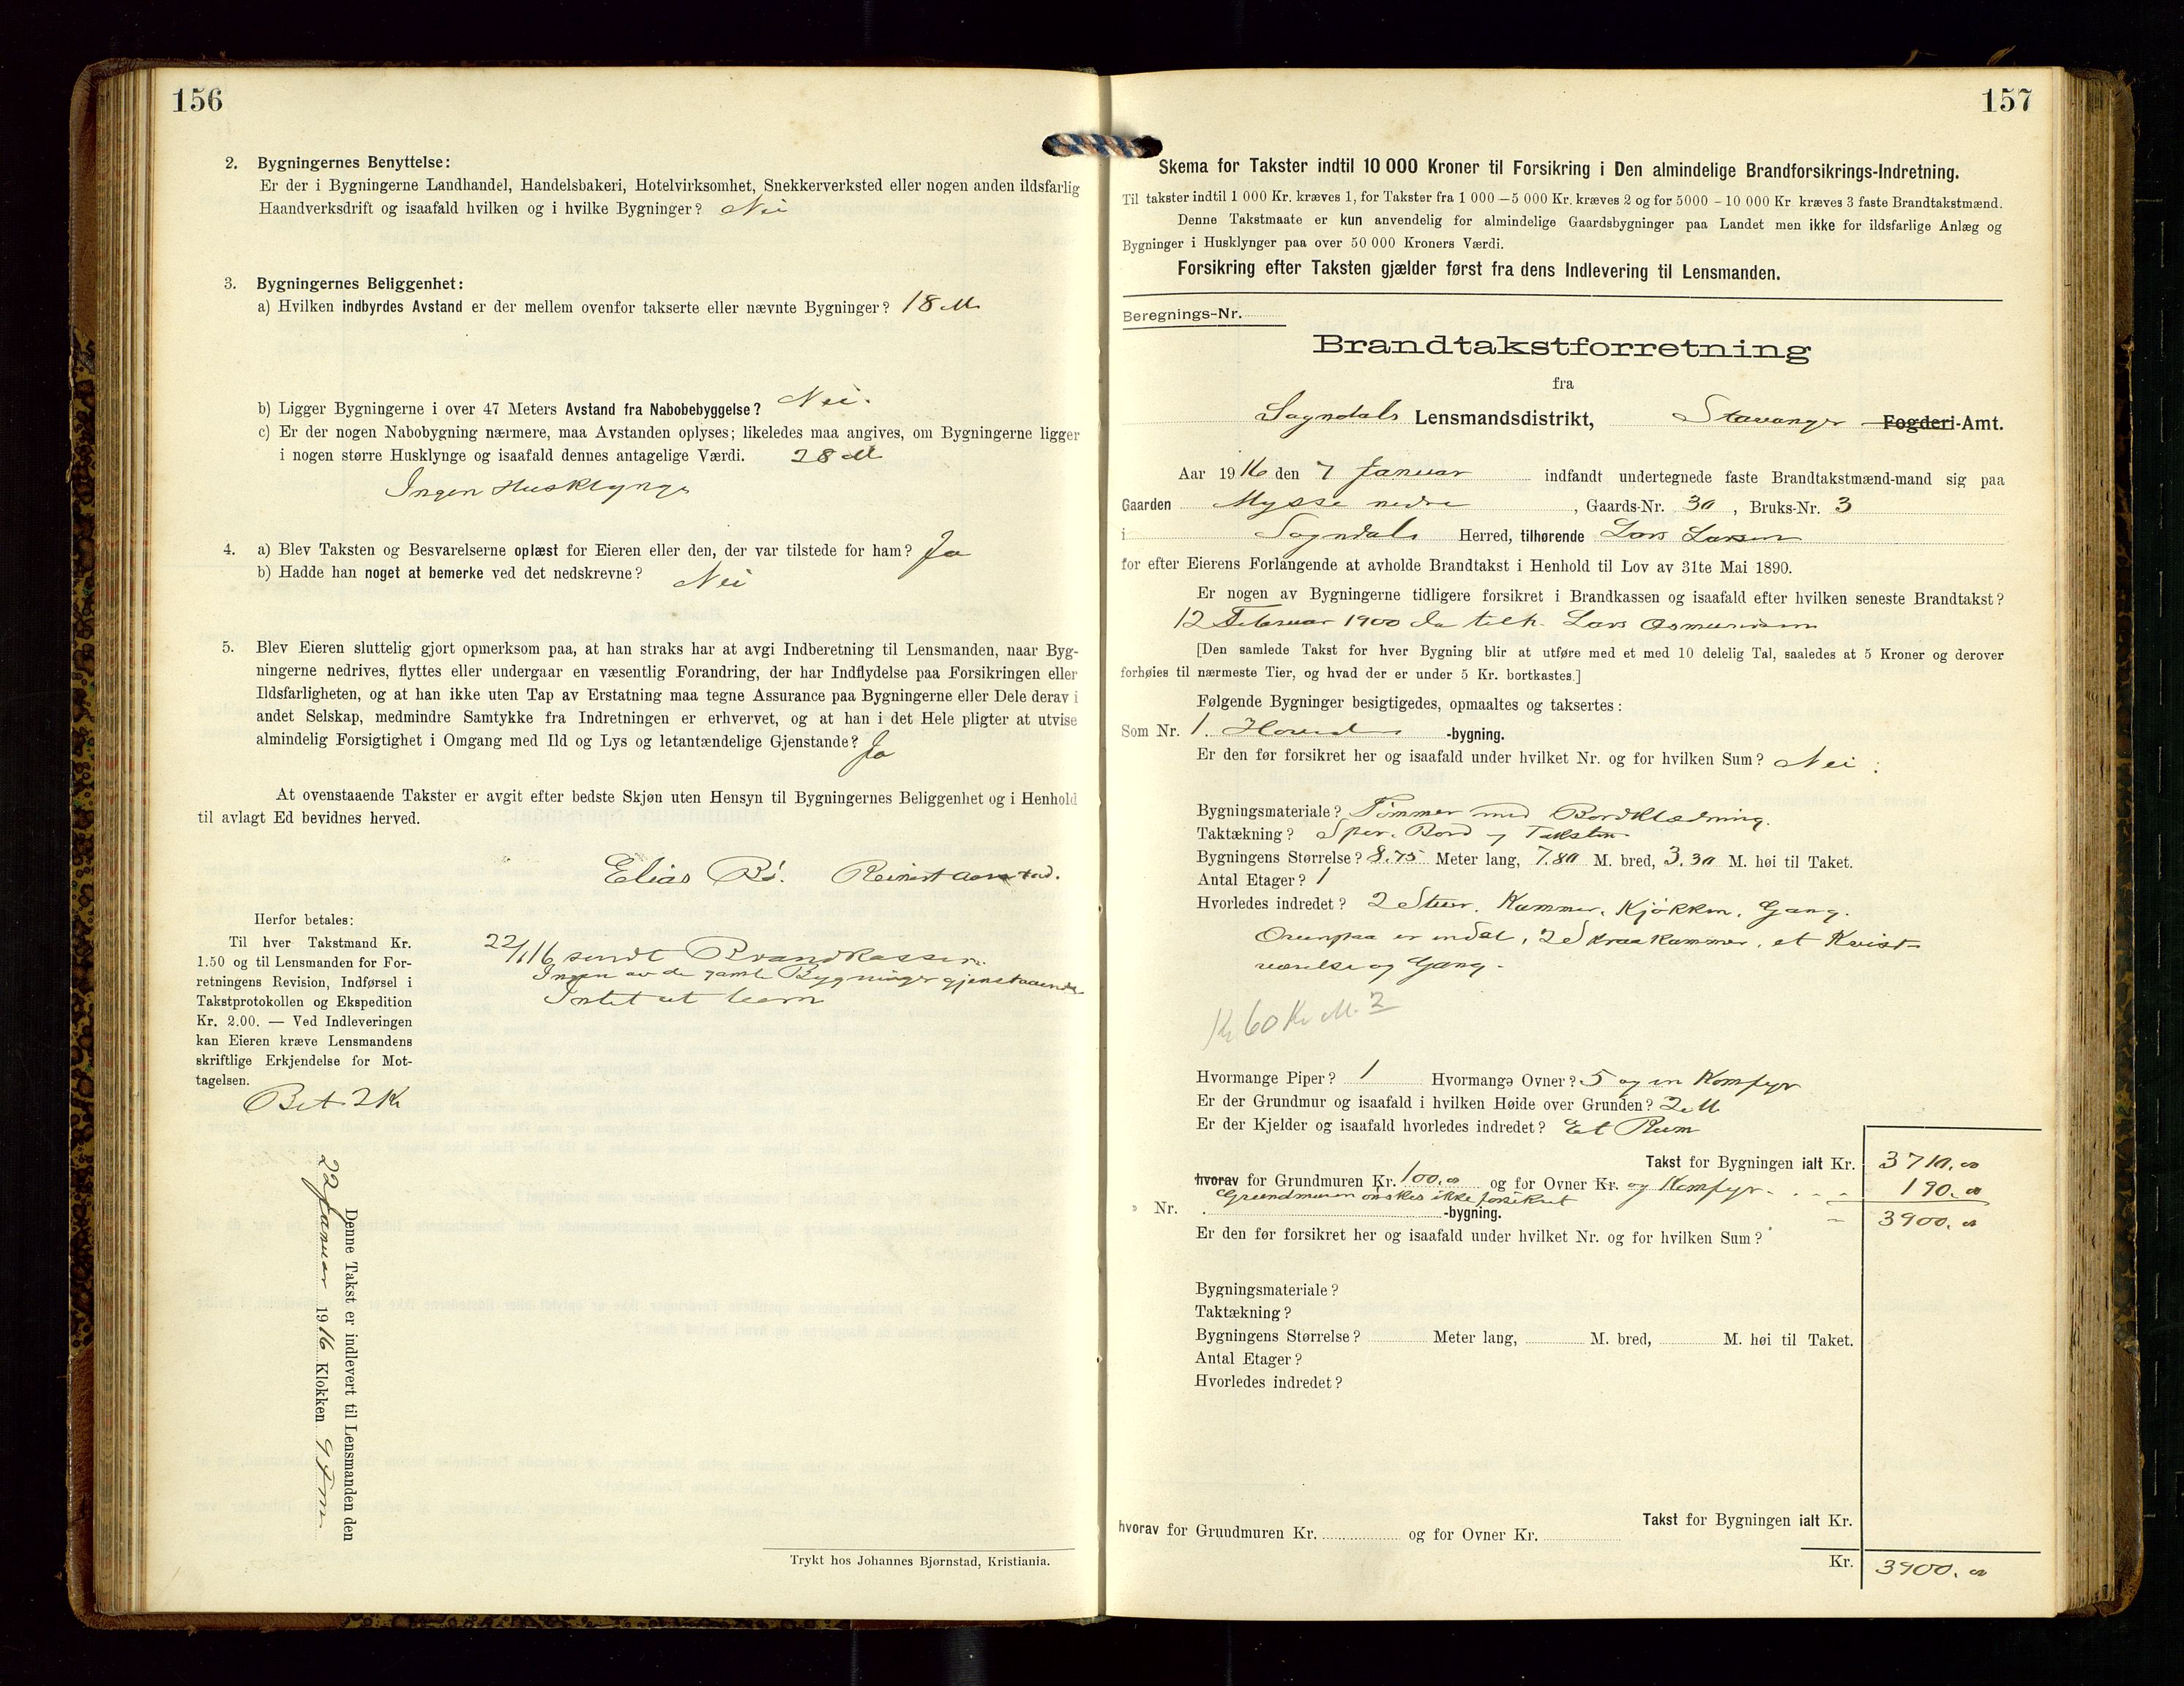 156
2. Bygningernes Benyttelse:
Er der i Bygningerne Landhandel, Handelsbakeri, Hotelvirksomhet, Snekkerverksted eller nogen anden ildsfarlig
Haandverksdrift og isaafald hvilken og i hvilke Bygninger? Nei
3. Bygningernes Beliggenhet:
a) Hvilken indbyrdes Avstand er der mellem ovenfor takserte eller nævnte Bygninger? 18 M
b) Ligger Bygningerne i over 47 Meters Avstand fra Nabobebyggelse? Nei.
c) Er der nogen Nabobygning nærmere, maa Avstanden oplyses; likeledes maa angives, om Bygningerne ligger
i nogen større Husklynge og isaafald dennes antagelige Værdi. 28 M
Ingen Husklynge
4. a) Blev Taksten og Besvarelserne oplæst for Eieren eller den, der var tilstede for ham? Ja
b) Hadde han noget at bemerke ved det nedskrevne? Nei
5. Blev Eieren sluttelig gjort opmerksom paa, at han straks har at avgi Indberetning til Lensmanden, naar Byg-
ningerne nedrives, flyttes eller undergaar en væsentlig Forandring, der har Indflydelse paa Forsikringen eller
Ildsfarligheten, og at han ikke uten Tap av Erstatning maa tegne Assurance paa Bygningerne eller Dele derav i
andet Selskap, medmindre Samtykke fra Indretningen er erhvervet, og at han i det Hele pligter at utvise
almindelig Forsigtighet i Omgang med Ild og Lys og letantændelige Gjenstande? Ja
At ovenstaaende Takster er avgit efter bedste Skjøn uten Hensyn til Bygningernes Beliggenhet og i Henhold
til avlagt Ed bevidnes herved.
Elias Rø. Reinert
Herfor betales:
Til hver Takstmand Kr.
1.50 og til Lensmanden for For-
retningens Revision, Indførsel i
Takstprotokollen og Ekspedition
Kr. 2.00. — Ved Indleveringen
kan Eieren kræve Lensmandens
skriftlige Erkjendelse for Mot-
tagelsen.
Bet. 2 Kr
22/1 16 sendt Brandkassen.
Ingen av de gamle Bygninger gjenstaaende
Intet at
Denne Takst er indlevert til Lensmanden den
22 Januar 1916 Klokken 9 Fm
Trykt hos Johannes Bjørnstad, Kristiania.
157
Skema for Takster indtil 10 000 Kroner til Forsikring i Den almindelige Brandforsikrings-Indretning.
Til takster indtil 1 000 Kr. kræves 1, for Takster fra 1 000 — 5 000 Kr. kræves 2 og for 5000 - 10 000 Kr. kræves 3 faste Brandtakstmænd.
Denne Takstmaate er kun anvendelig for almindelige Gaardsbygninger paa Landet men ikke for ildsfarlige Anlæg og
Bygninger i Husklynger paa over 50 000 Kroners Værdi.
Forsikring efter Taksten gjælder først fra dens Indlevering til Lensmanden.
Beregnings-Nr.
Brandtakstforretning
fra
Sogndals Lensmandsdistrikt, Stavanger Fogderi-Amt.
Aar 1916 den 7 Januar indfandt undertegnede faste Brandtakstmænd-mand sig paa
Gaarden Mysse nedre, Gaards-Nr. 30, Bruks-Nr. 3
i Sogndals Herred, tilhørende Lars Larsen
for efter Eierens Forlangende at avholde Brandtakst i Henhold til Lov av 31te Mai 1890.
Er nogen av Bygningerne tidligere forsikret i Brandkassen og isaafald efter hvilken seneste Brandtakst?
12 Februar 1900 da tilh. Lars Osmundsen
[Den samlede Takst for hver Bygning blir at utføre med et med 10 delelig Tal, saaledes at 5 Kroner og derover
forhøies til nærmeste Tier, og hvad der er under 5 Kr. bortkastes.]
Følgende Bygninger besigtigedes, opmaaltes og taksertes:
Som Nr. 1. Hoved -bygning.
Er den før forsikret her og isaafald under hvilket Nr. og for hvilken Sum? Nei.
Bygningsmateriale? Tømmer med Bordklædning.
Taktækning? Sper. Bord og Taksten
Bygningens Størrelse? 8.75 Meter lang, 7.80 M. bred, 3.30 M. høi til Taket.
Antal Etager? 1
Hvorledes indredet? 2 Stuer. Kammer. Kjøkken. Gang.
Ovenpaa er indel. 2 Skraakammer, et Kvist
værelse og Gang.
Kr. 60 Kr M. 2
Hvormange Piper? 1 Hvormange Ovner? 5 og en Komfyr
Er der Grundmur og isaafald i hvilken Høide over Grunden? 2 M
Er der Kjelder og isaafald hvorledes indredet? Et Rum
Takst for Bygningen ialt Kr. 3710.00
hvorav for Grundmuren Kr. 100.00 og for Ovner Kr. og Komfyr - 190.00
Grundmuren ønskes ikke forsikret
Nr. -bygning. - 3900.00
Er den før forsikret her og isaafald under hvilket Nr. og for hvilken Sum?
Bygningsmateriale?
Taktækning?
Bygningens Størrelse? Meter lang, M. bred, M. høi til Taket.
Antal Etager?
Hvorledes indredet?
Takst for Bygningen ialt Kr.
hvorav for Grundmuren Kr. og for Ovner Kr.
Kr. 3900.00